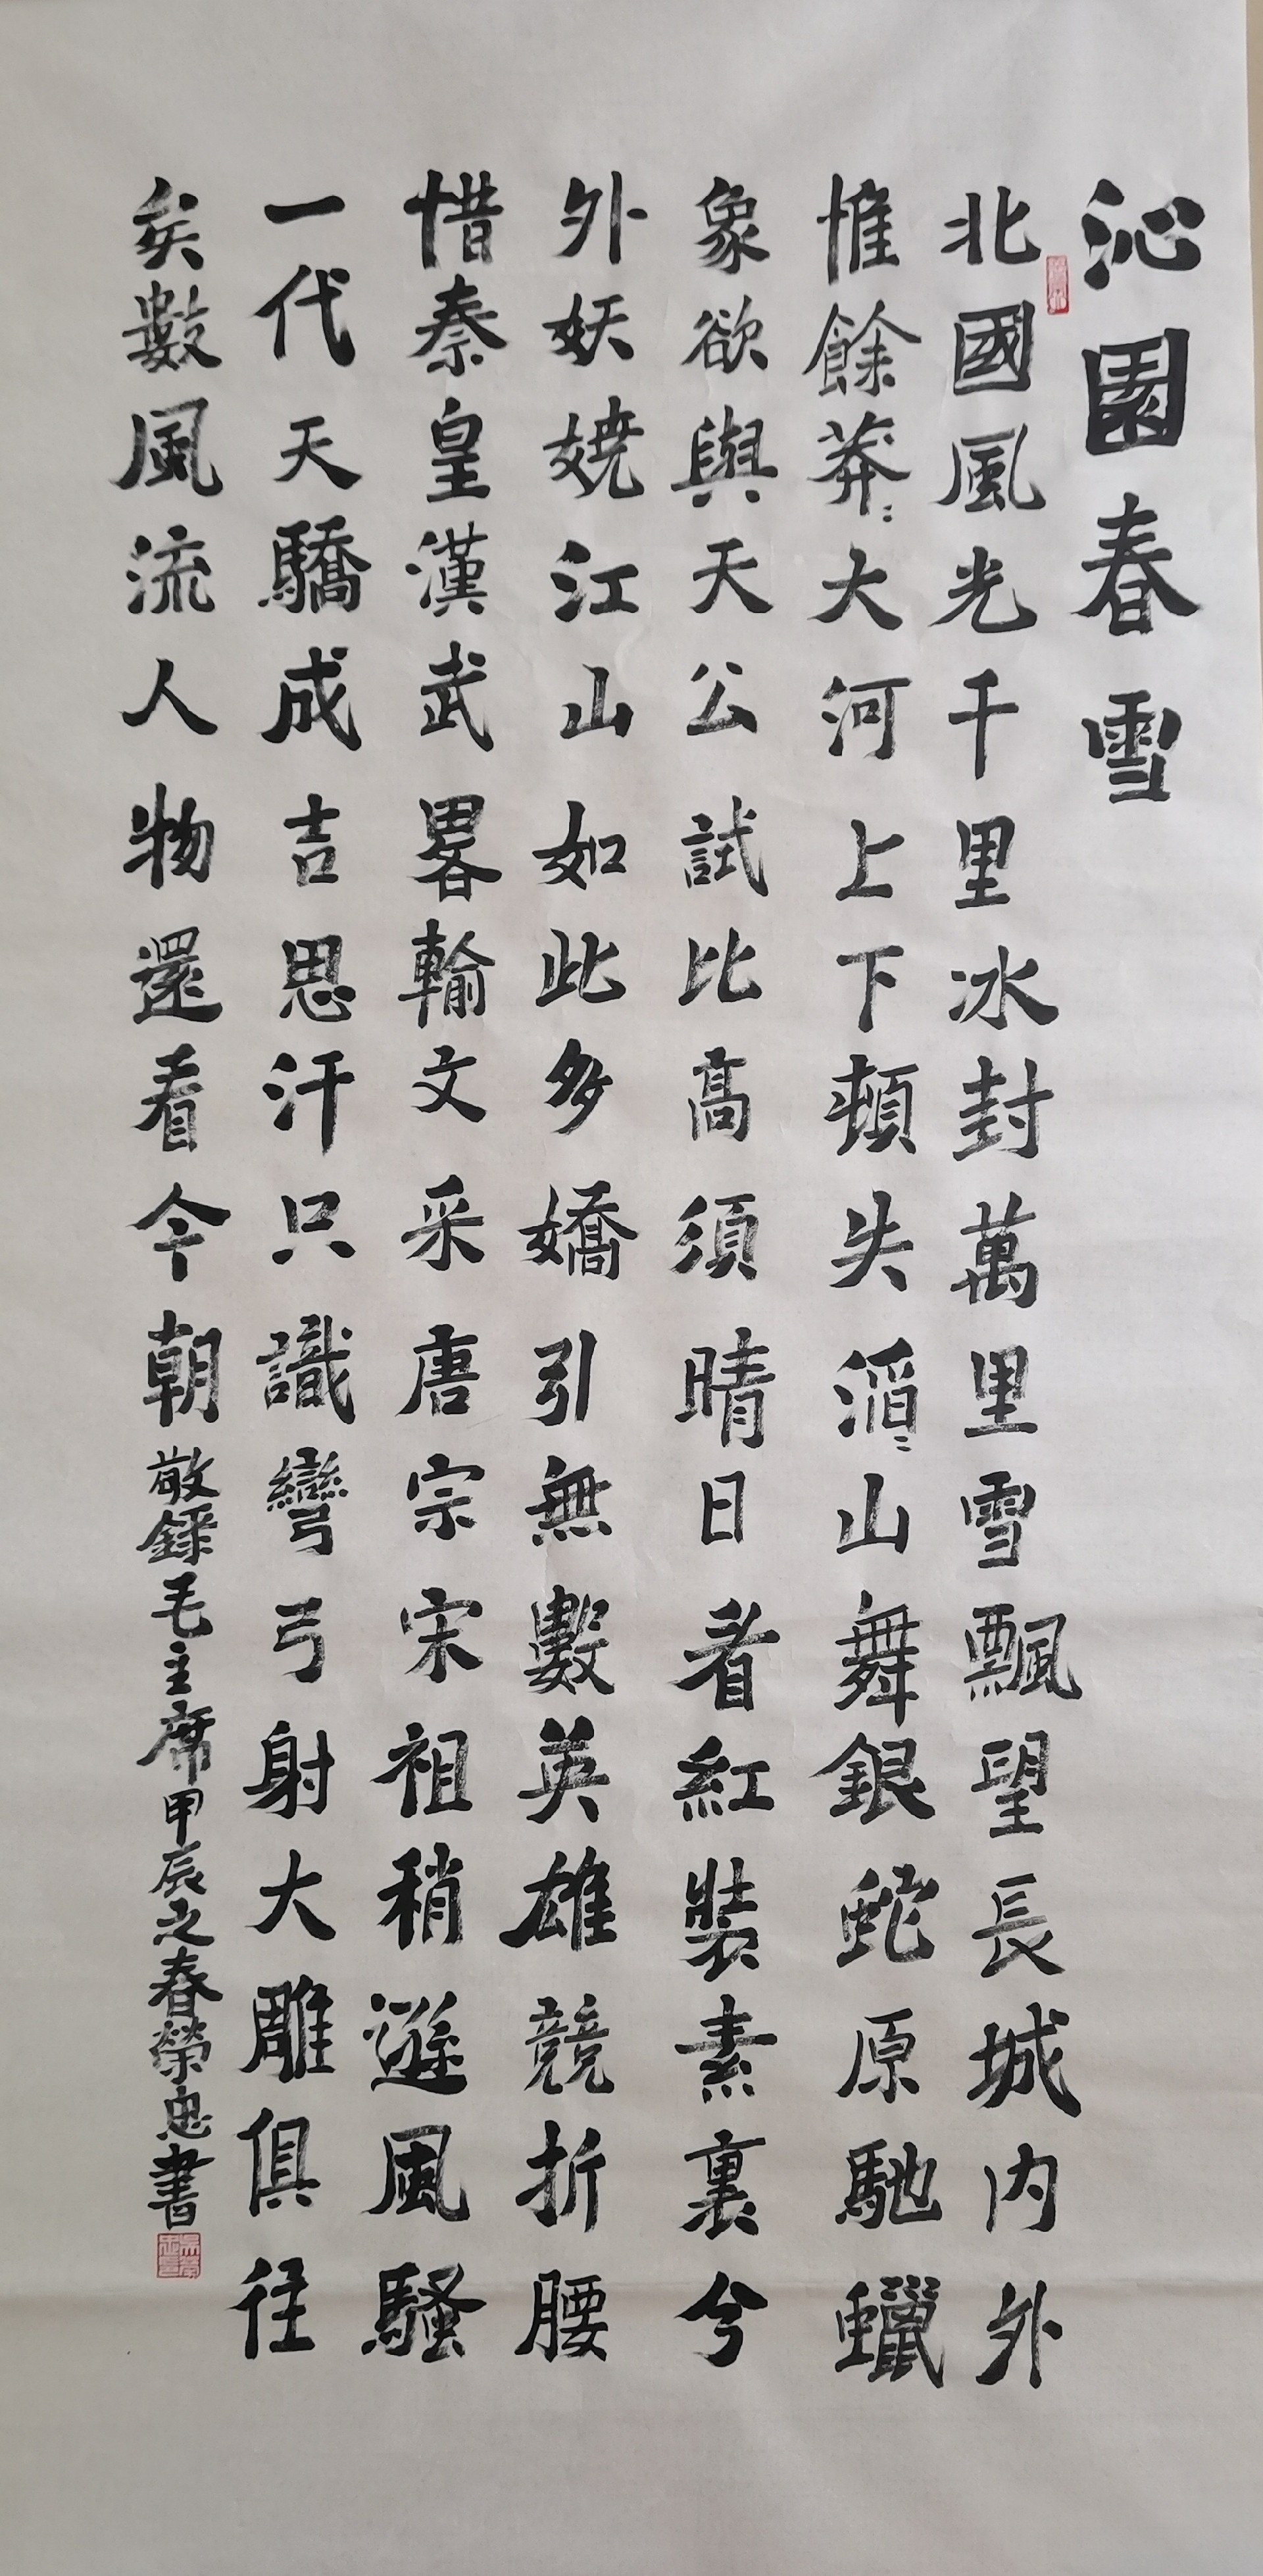 沁園春雪
北國風光千里冰封萬里雪飄望長城内外
惟餘莽〻大河上下頓失滔〻山舞銀蛇原馳蠟
象欲與天公試比高須晴日看紅裝素裹兮
外妖嬈江山如此多嬌引無數英雄競折腰
惜秦皇漢武畧輸文采唐宗宋祖稍遜風騷
一代天驕成吉思汗只識彎弓射大雕俱往
矣數風流人物還看今朝敬錄毛主席甲辰之春榮忠書